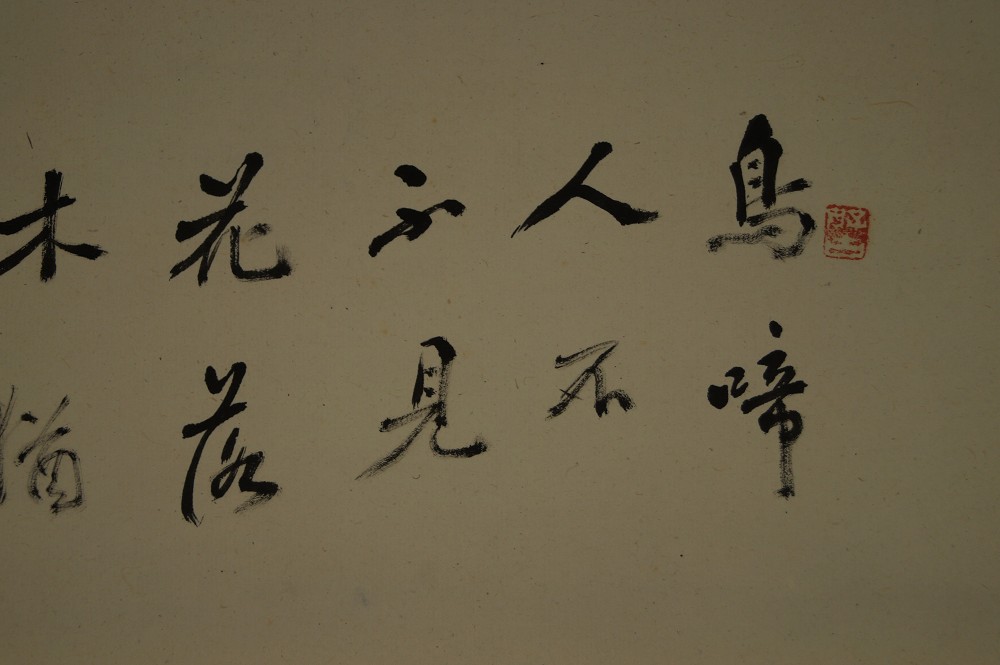 鳥啼
人不
不見
花落
木猶